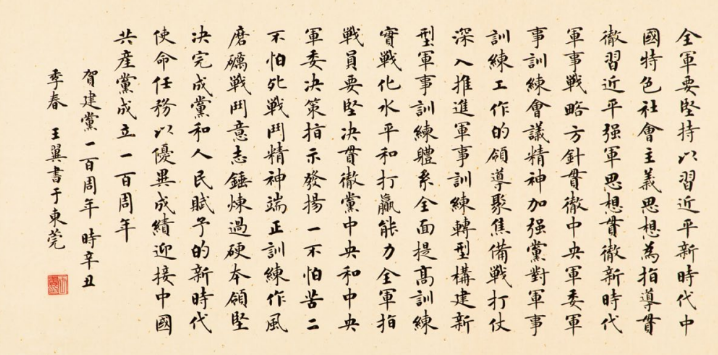 全軍要堅持以習近平新時代中
國特色社會主義思想為指導貫
徹習近平强軍思想貫徹新時代
軍事戰略方針貫徹中央軍委軍
事訓練會議精神加强黨對軍事
訓練工作的領導聚焦備戰打仗
深入推進軍事訓練轉型構建新
型軍事訓練體系全面提高訓練
實戰化水平和打贏能力全軍指
戰員要堅决貫徹黨中央和中央
軍委决策指示發揚一不怕苦二
不怕死戰鬥精神端正訓練作風
磨礪戰鬥意志錘煉過硬本領堅
决完成黨和人民賦予的新時代
使命任務以優異成績迎接中國
共產黨成立一百周年
賀建黨一百周年 時辛丑
季春 王翼書于東莞